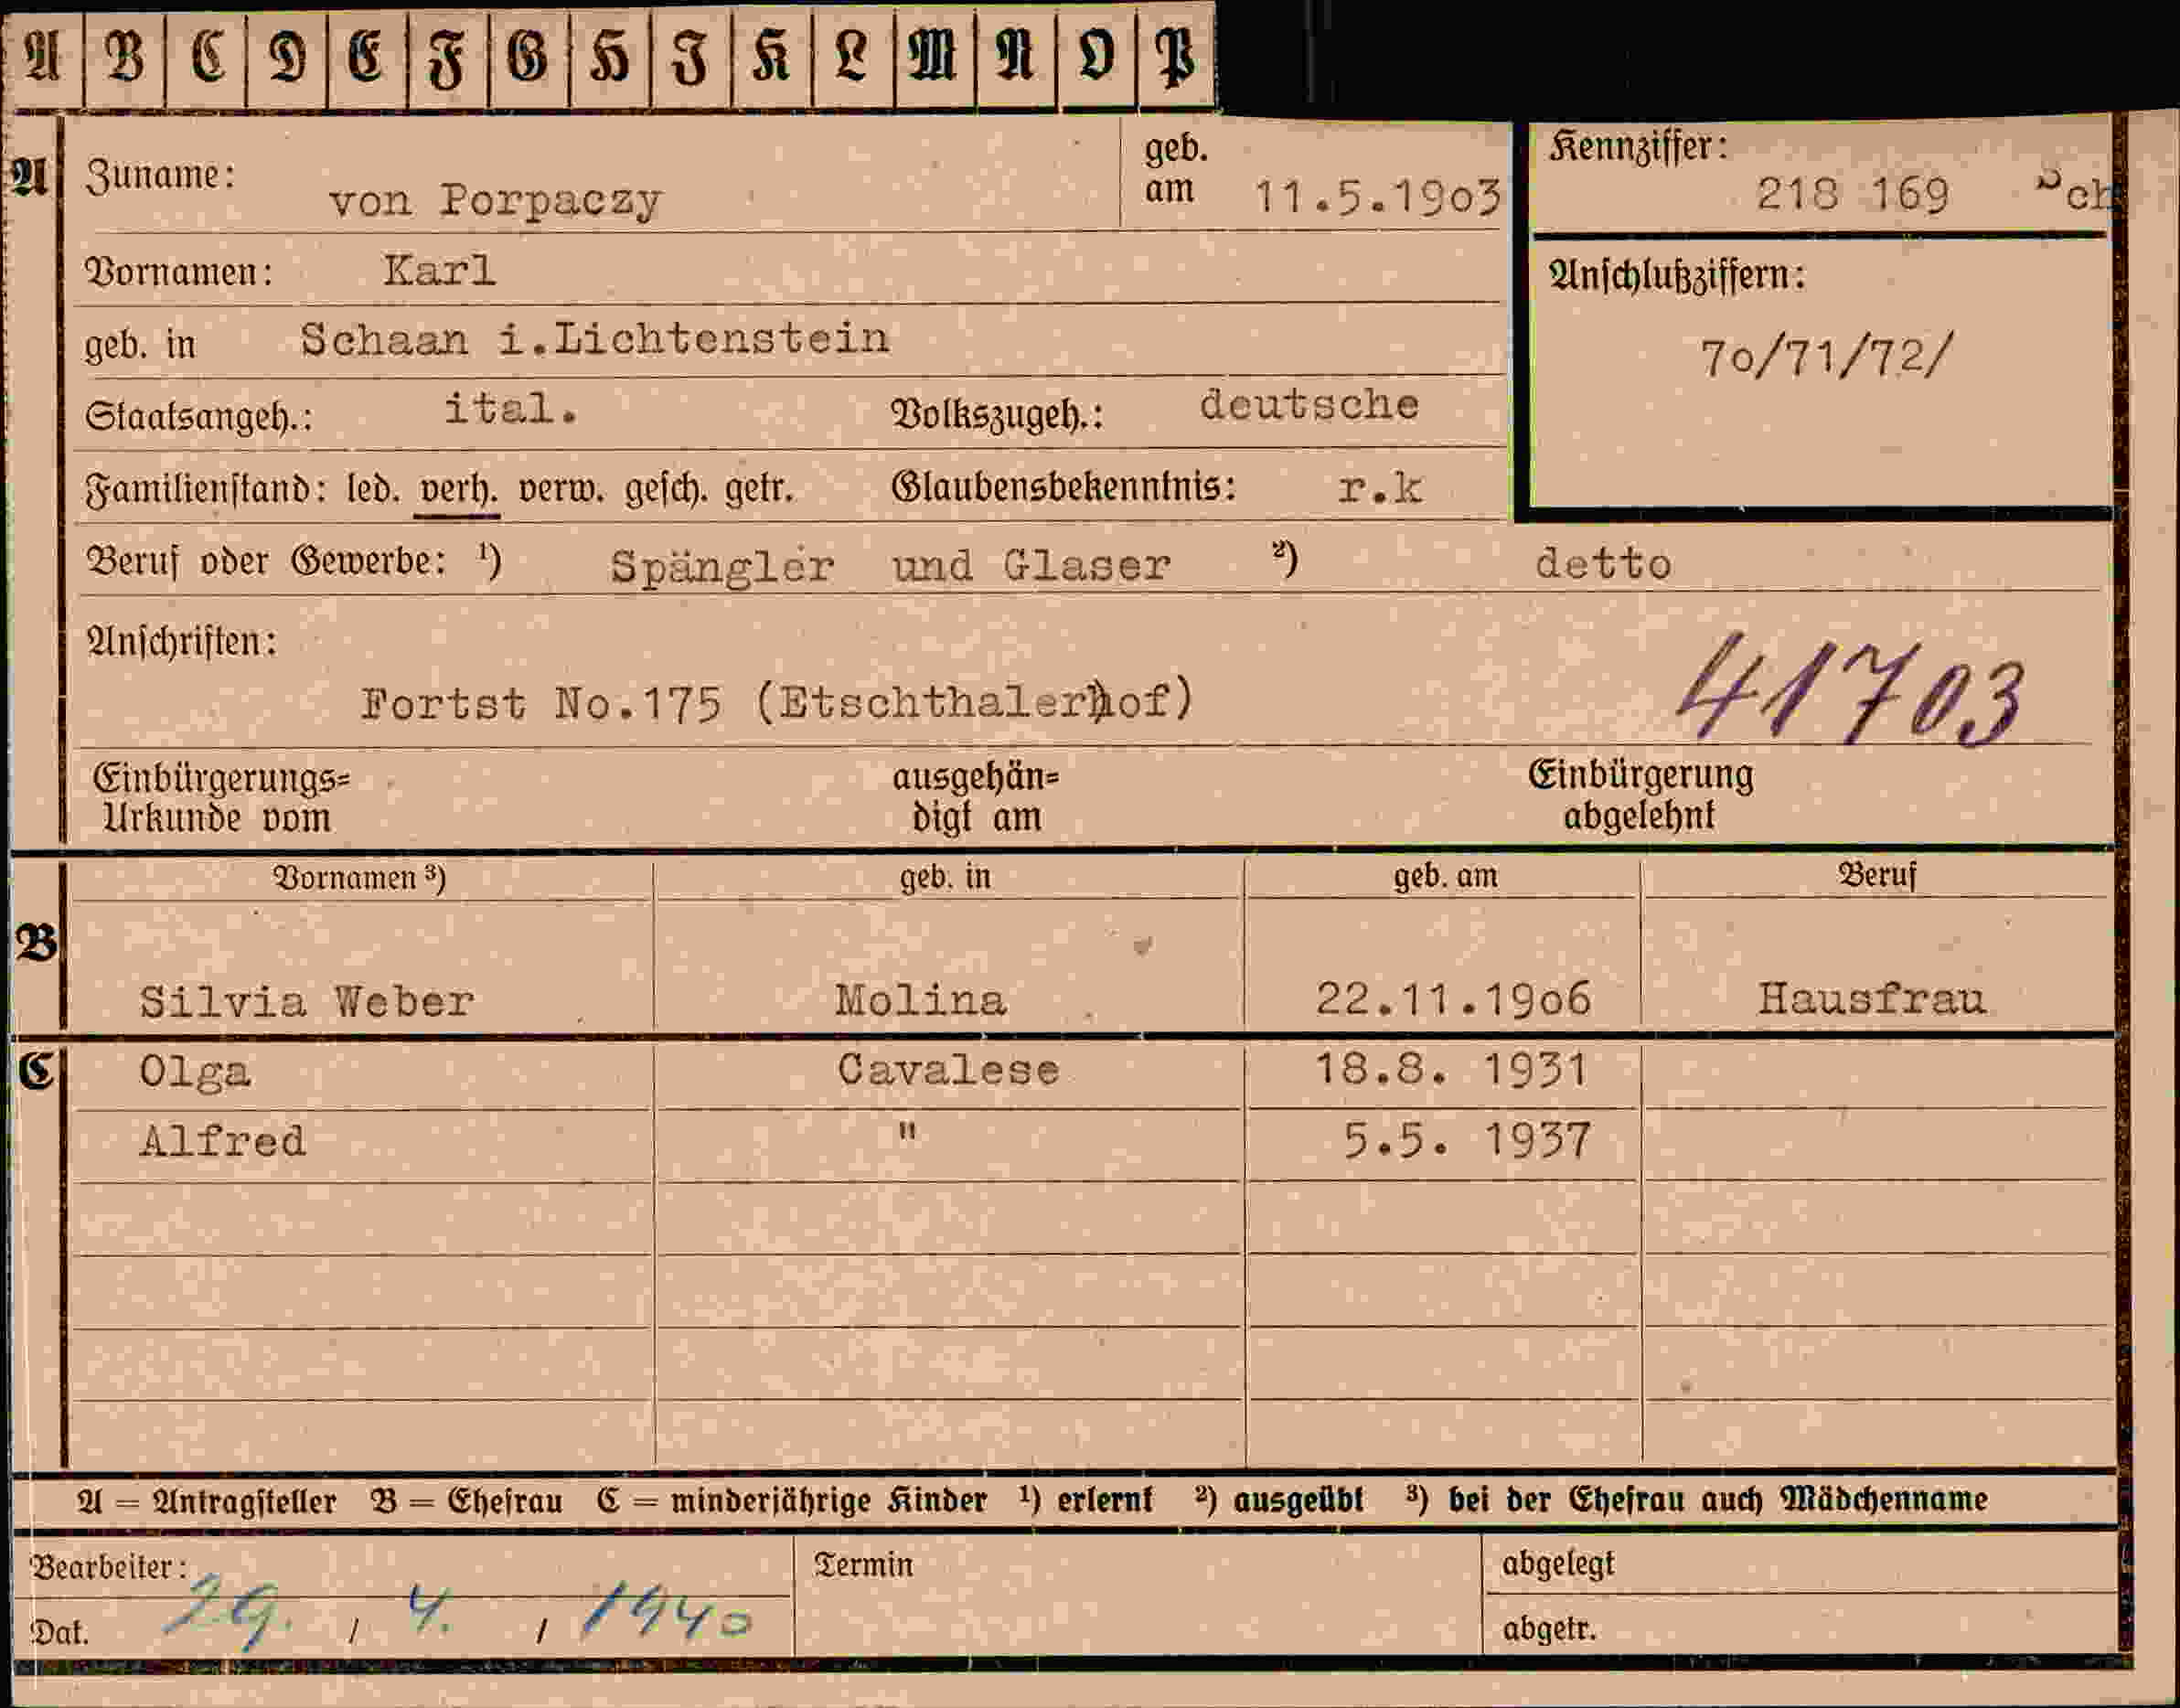 A B C D E F G H I K L M N O P
A Zuname: von Porpaczy geb. am 11.5.1903 Kennziffer: 218 169 Sch
Vornamen: Karl Anschlußziffern:
geb. in Schaan i.Lichtenstein 70/71/72/
Staatsangeh.: ital. Volkszugeh.: deutsche
Familienstand: led. verh. verw. gesch. getr. Glaubensbekenntnis: r.k
Beruf oder Gewerbe: ¹) Spängler und Glaser ²) detto
Anschriften:
41703
Fortst No.175 (Etschthalerhof)
Einbürgerungs= ausgehän= Einbürgerung
Urkunde vom digt am abgelehnt
Vornamen ³) geb. in geb. am Beruf
B
Silvia Weber Molina 22.11.1906 Hausfrau
C Olga Cavalese 18.8. 1931
Alfred " 5.5. 1937
A = Antragsteller B = Ehefrau C = minderjährige Kinder ¹) erlernt ²) ausgeübt ³) bei der Ehefrau auch Mädchenname
Bearbeiter: Termin abgelegt
Dat. 29. / 4. / 1940 abgetr.